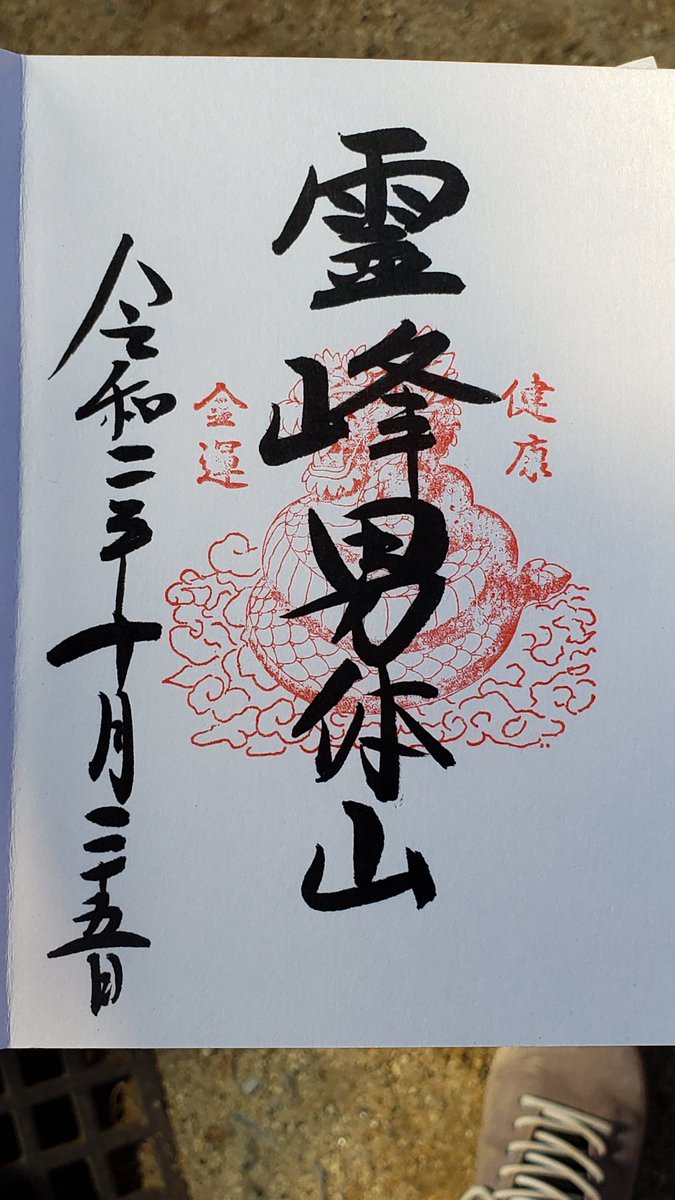 健康
霊峰男体山
金運
令和二年十月二十五日